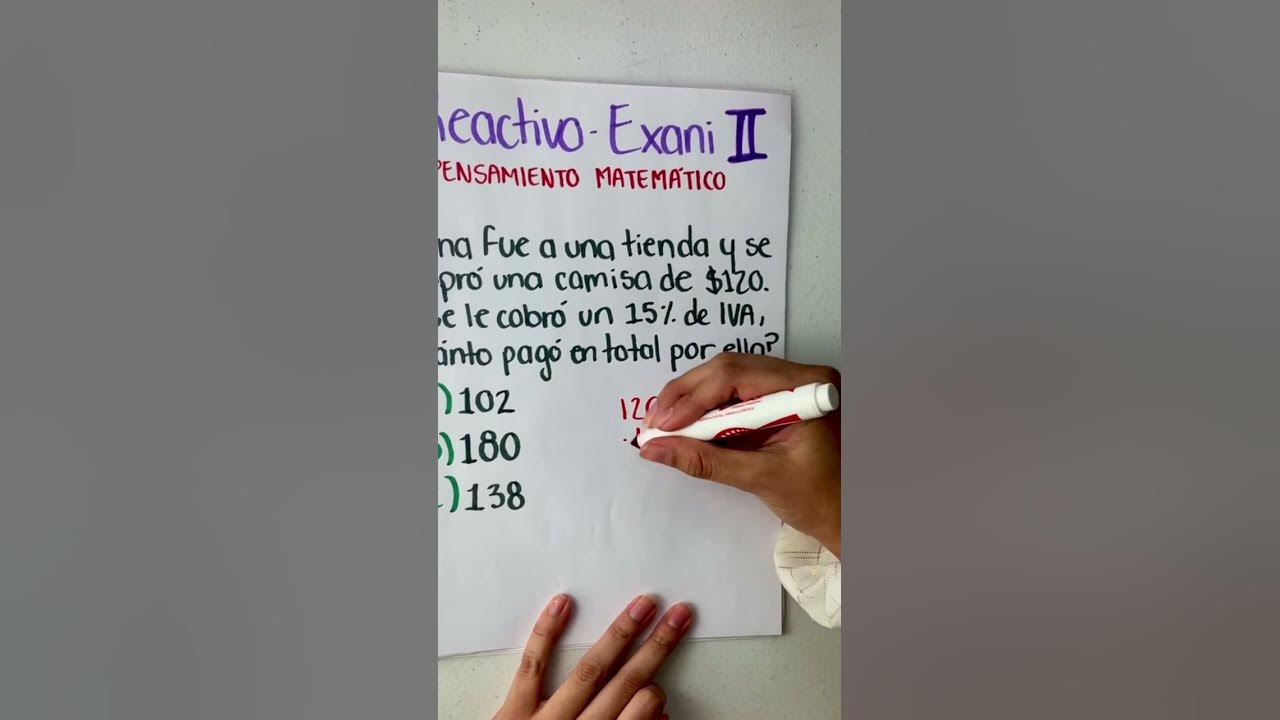 Reactivo - Exani II
PENSAMIENTO MATEMÁTICO
na fue a una tienda y se
pró una camisa de $120.
e le cobró un 15% de IVA,
ánto pagó en total por ella?
)102
)180
)138
12